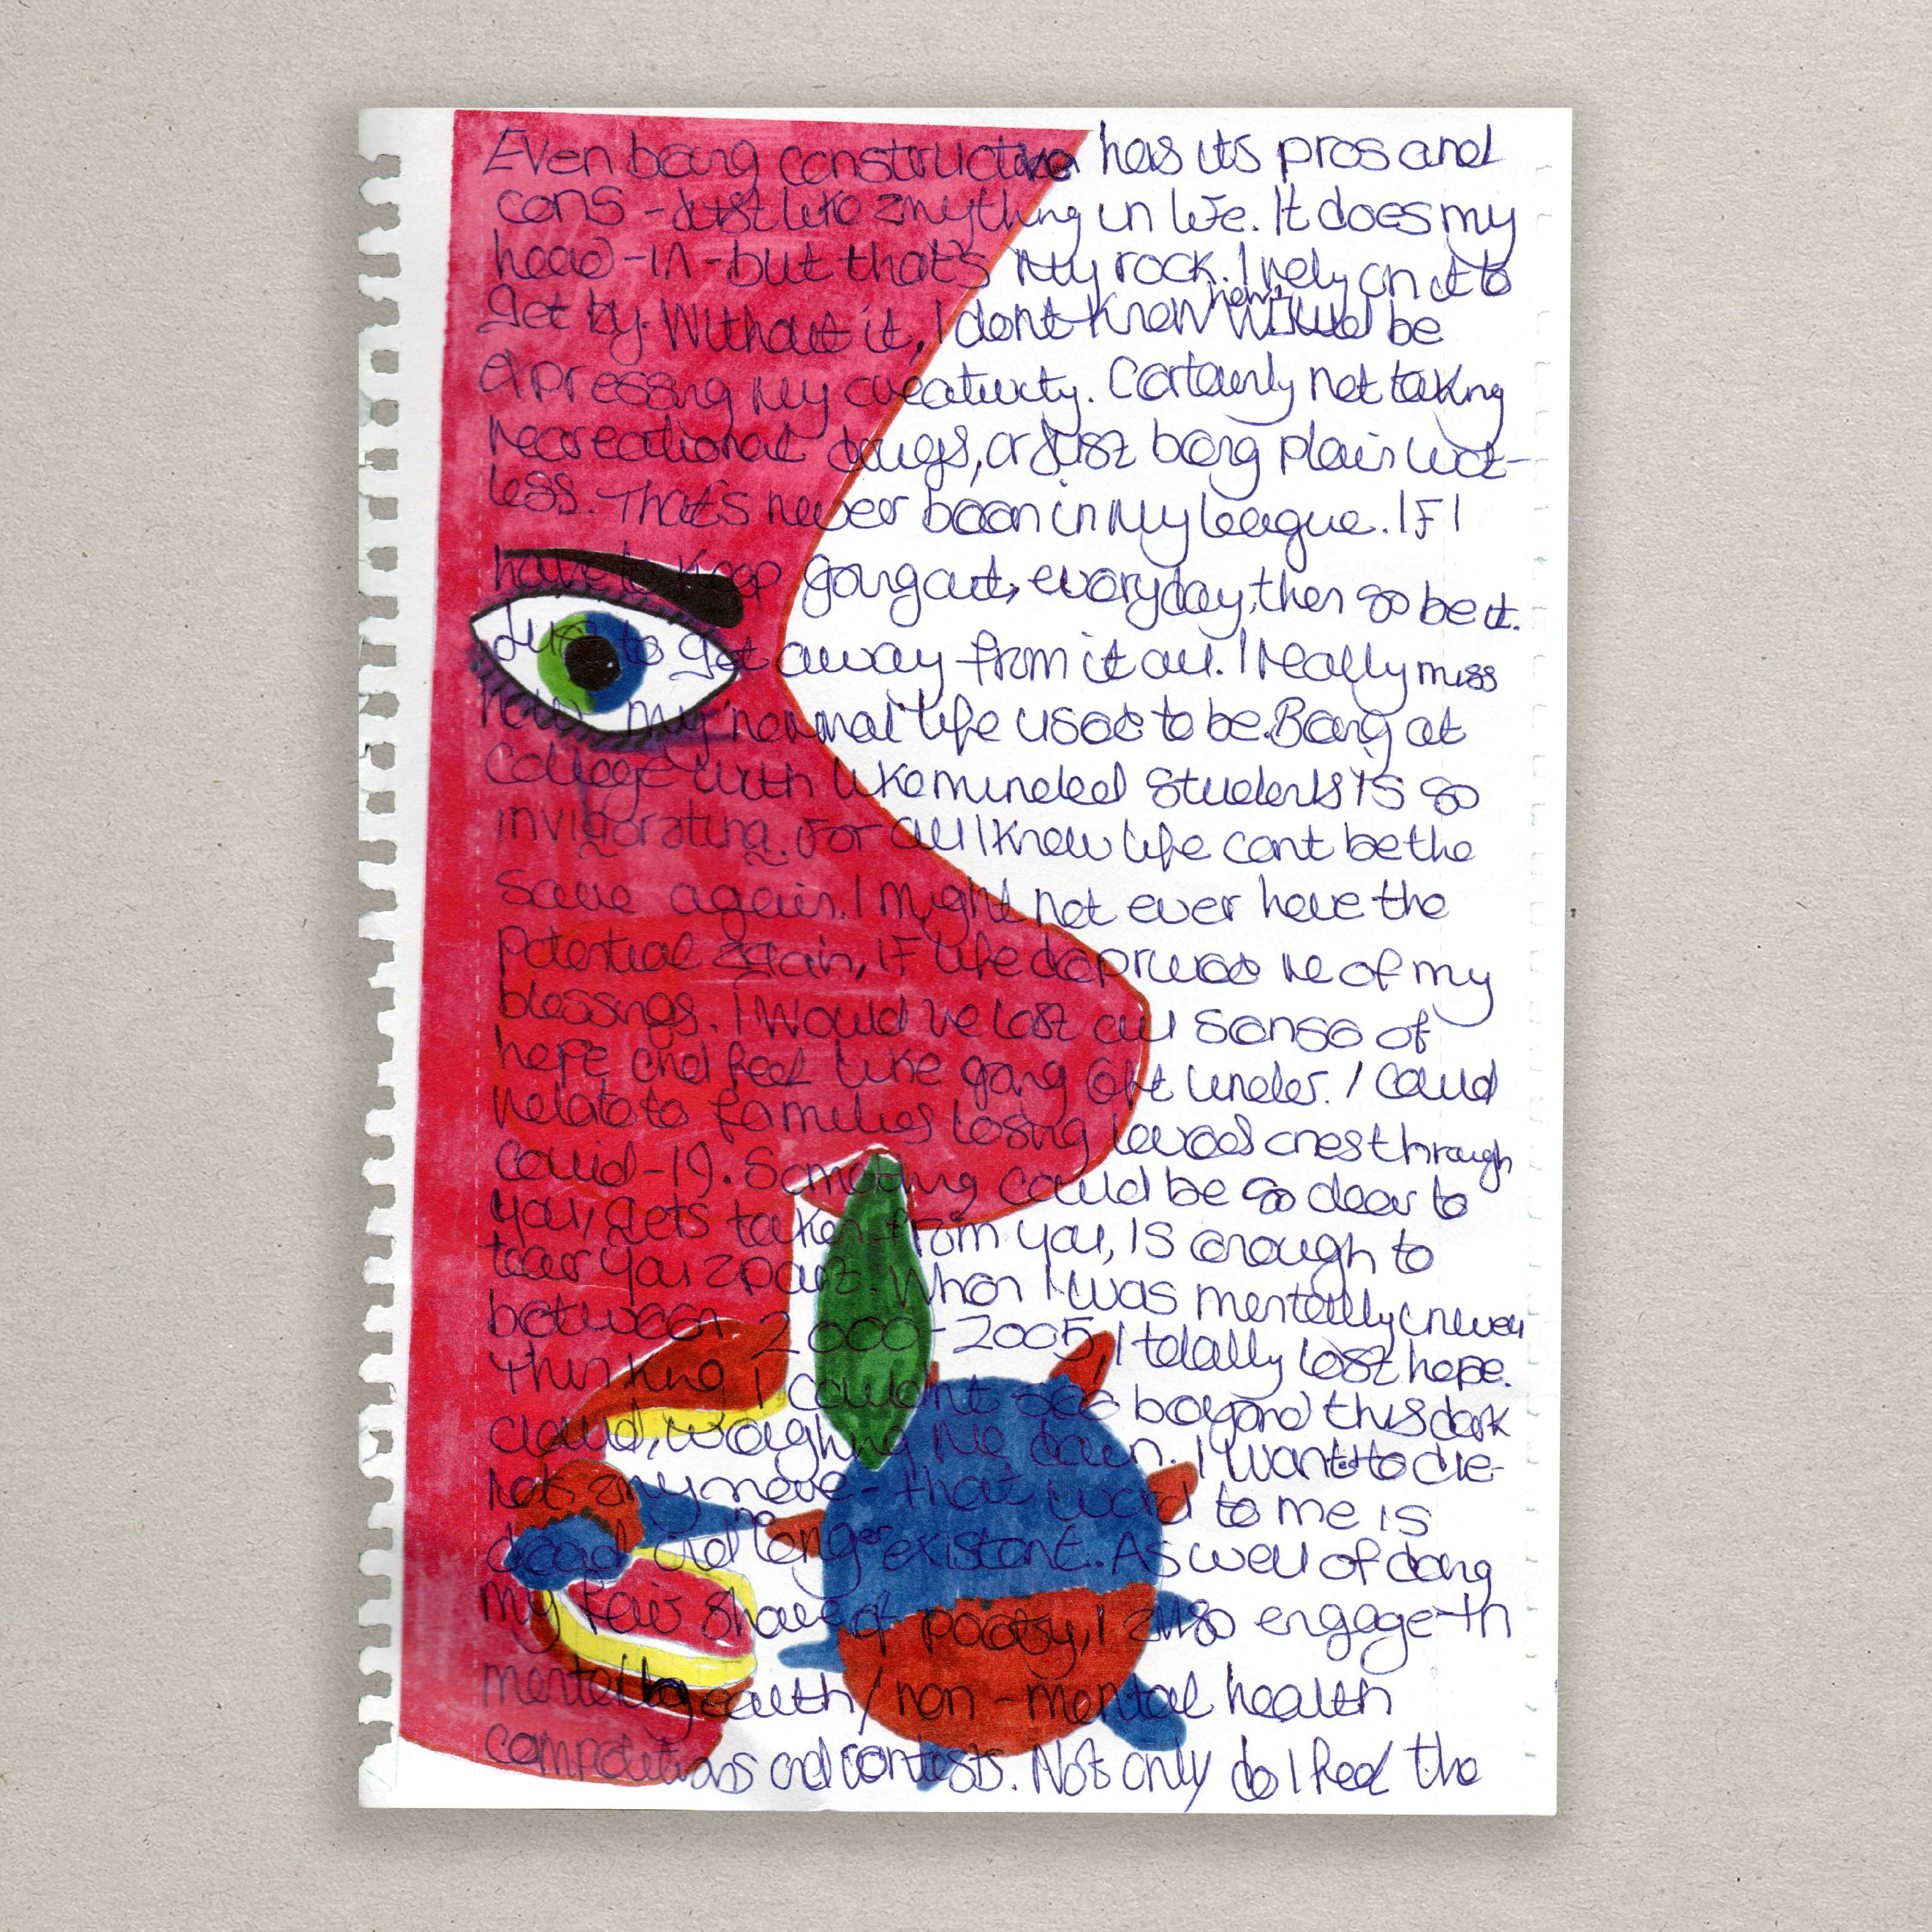 Even being constructive has its pros and
cons - Just like anything in life. It does my
head - in - but that's my rock. I rely on it to
get by. Without it, I dont know how I would be
expressing my creativity. Certainly not taking
recreational drugs, or Just being plain wit-
less. That's never been in my league. If I
have to keep going out, everyday, then so be it.
Just to get away from it all. I really miss
how my 'normal' life used to be. Being at
College with likeminded students is so
invigorating. For all I know life cant be the
same again. I might not ever have the
potential again, if life deprives me of my
blessings. I would've lost all sense of
hope and feel like going 6ft under. I could
relate to families losing loved ones through
Covid-19. Something could be so dear to
you, gets taken from you, is enough to
tear you apart. When I was mentally unwell
between 2000-2005, I totally lost hope.
Thinking I couldn't see beyond this dark
cloud, weighing me down. I wanted to die-
not anymore - that word to me is
dead and no longer existant. As well of doing
my fair share of poetry, I also engage - in
mental health / non - mental health
competitions and contests. Not only do I feel the